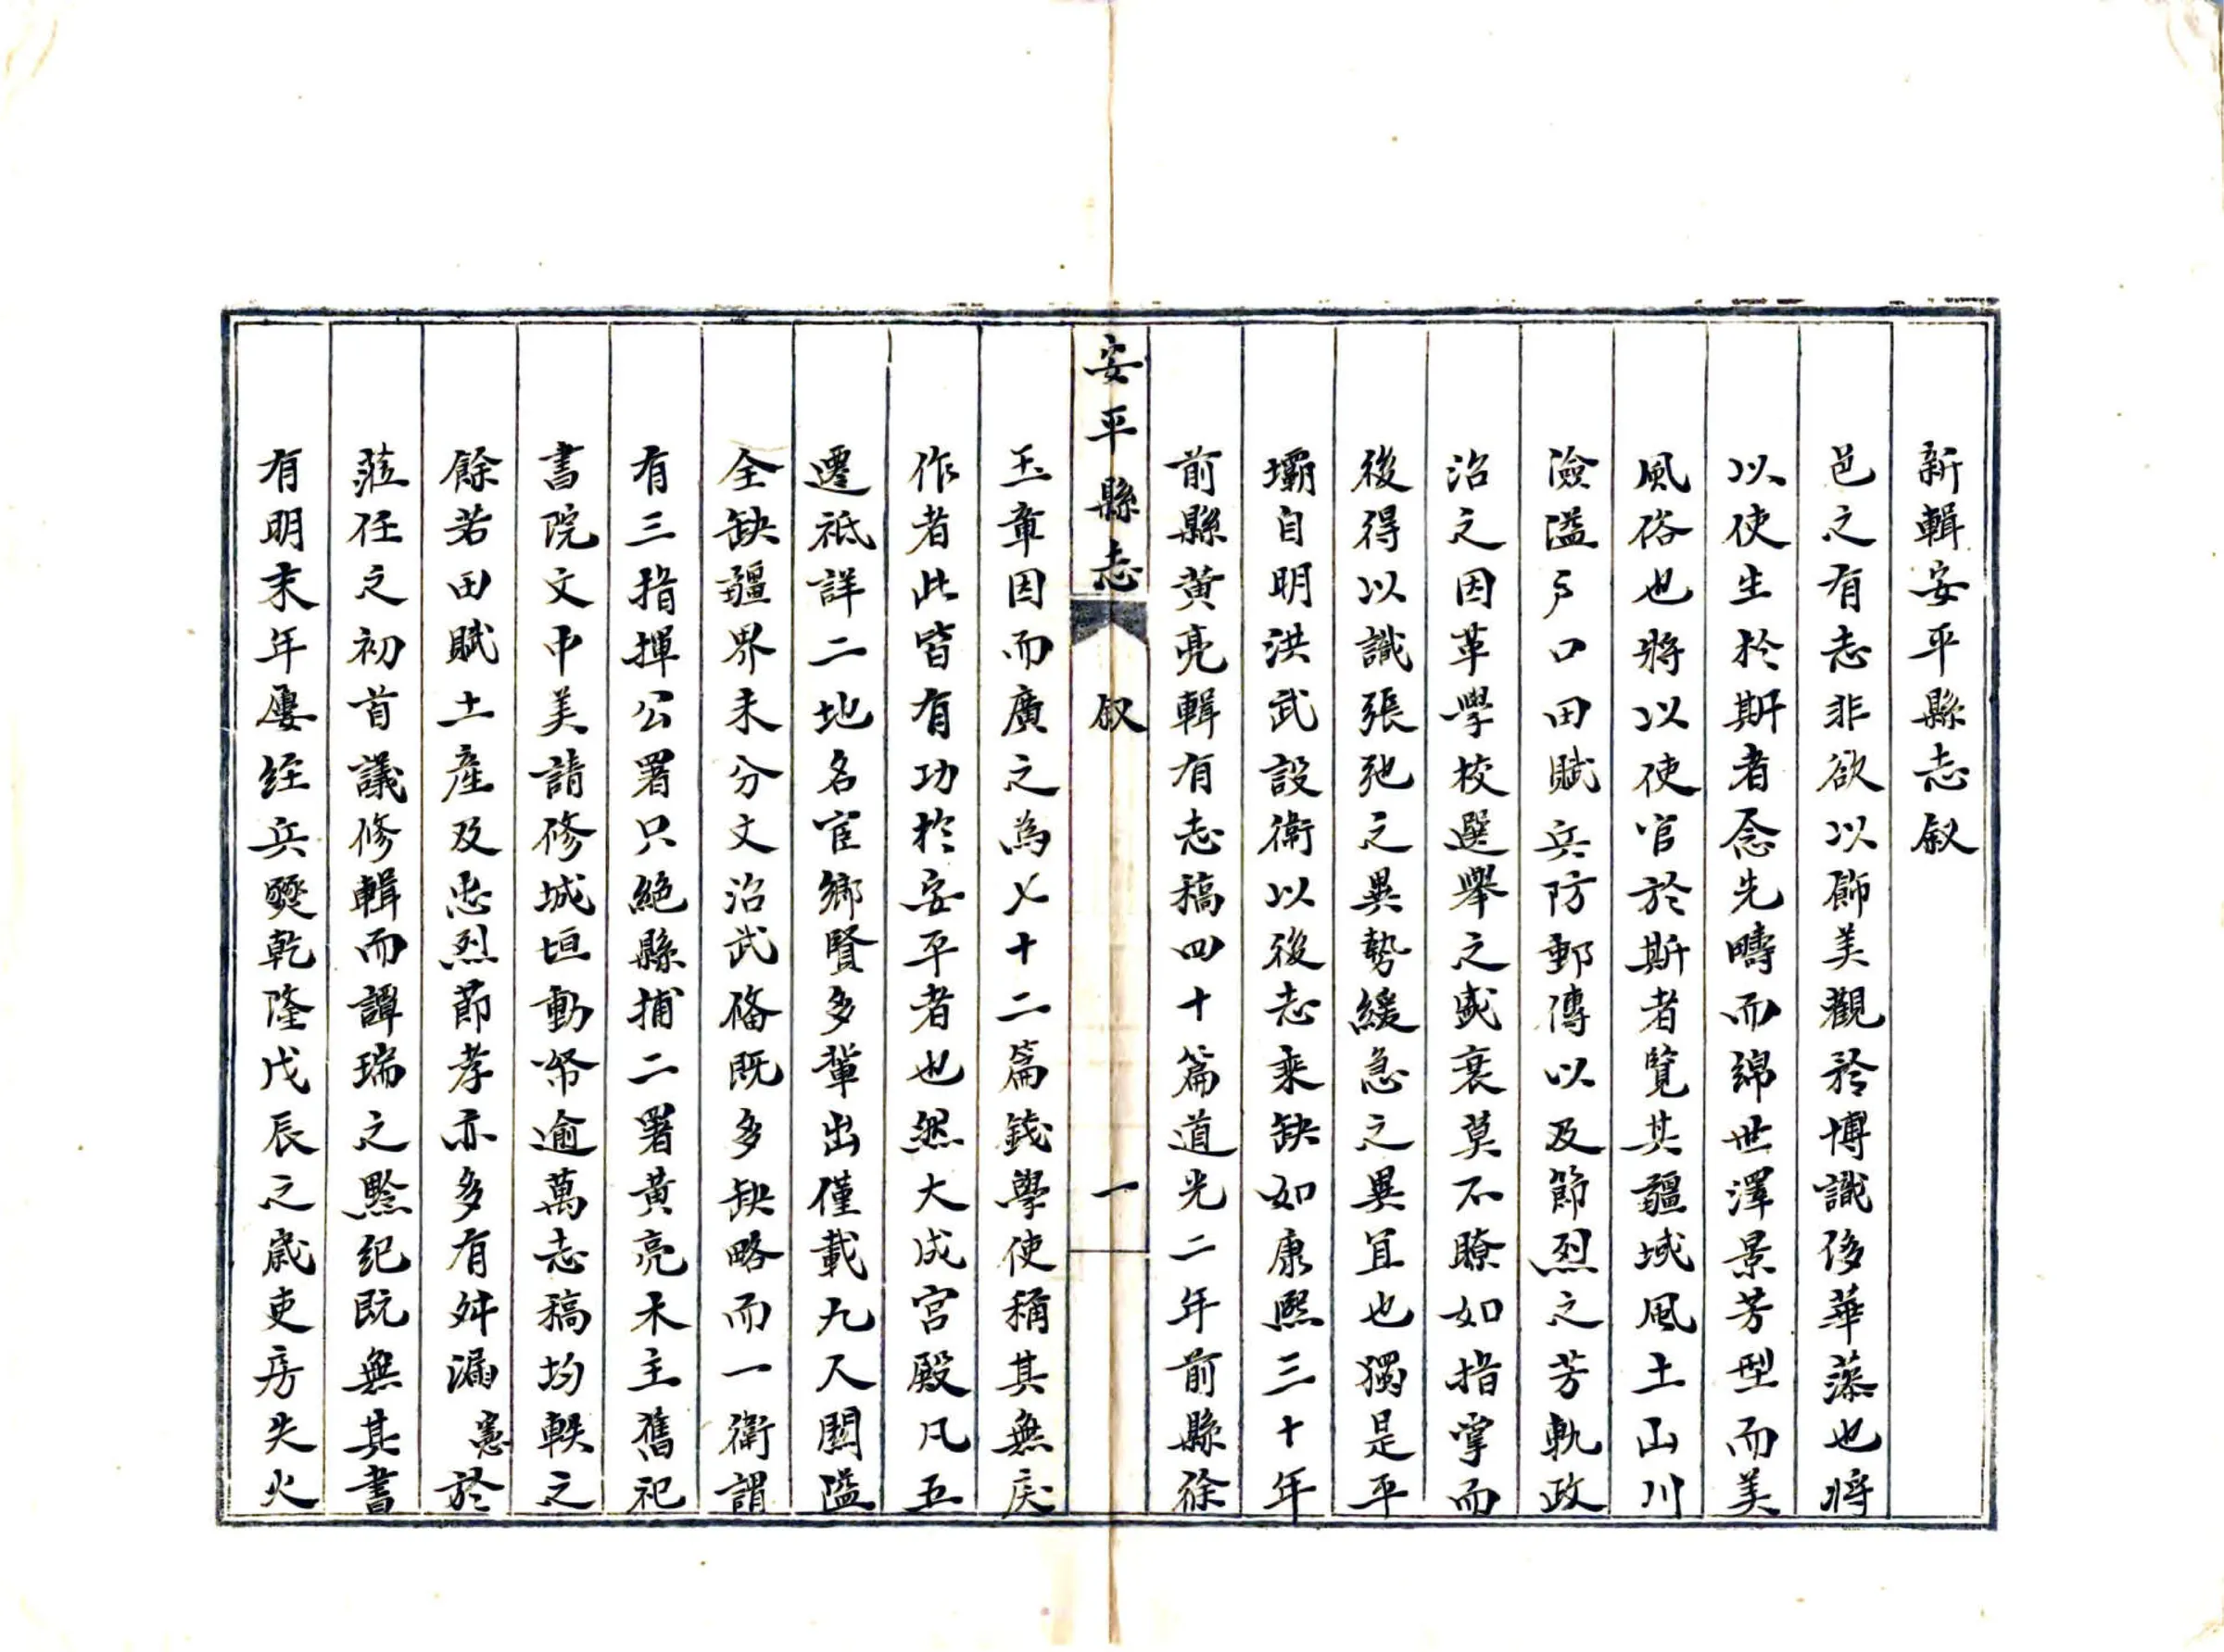 新輯安平縣志叙
邑之有志非欲以飾美觀矜博識侈華藻也將
以使生於斯者念先疇而綿世澤景芳型而美
風俗也將以使官於斯者覧其疆域風土山川
險溢户口田賦兵防郵傳以及節烈之芳軌政
治之因革學校選舉之盛衰莫不瞭如指掌而
後得以識張弛之異勢緩急之異宜也獨是平
壩自明洪武設衛以後志乘缺如康熙三十年
前縣黄亮輯有志稿四十篇道光二年前縣徐
安平縣志 叙 一
玉章因而廣之為七十二篇錢學使稱其無戾
作者此皆有功於安平者也然大成宮殿凡五
遷祗詳二地名宦鄉賢多輩出僅載九人關隘
全缺疆界未分文治武俻既多缺略而一衛謂
有三指揮公署只絕縣捕二署黄亮木主舊祀
書院文中美請修城垣動帑逾萬志稿均軼之
餘若田賦土產及忠烈節孝亦多有舛漏憲於
蒞任之初首議修輯而譚瑞之黔紀既無其書
有明末年屢經兵燹乾隆戊辰之歲吏房失火